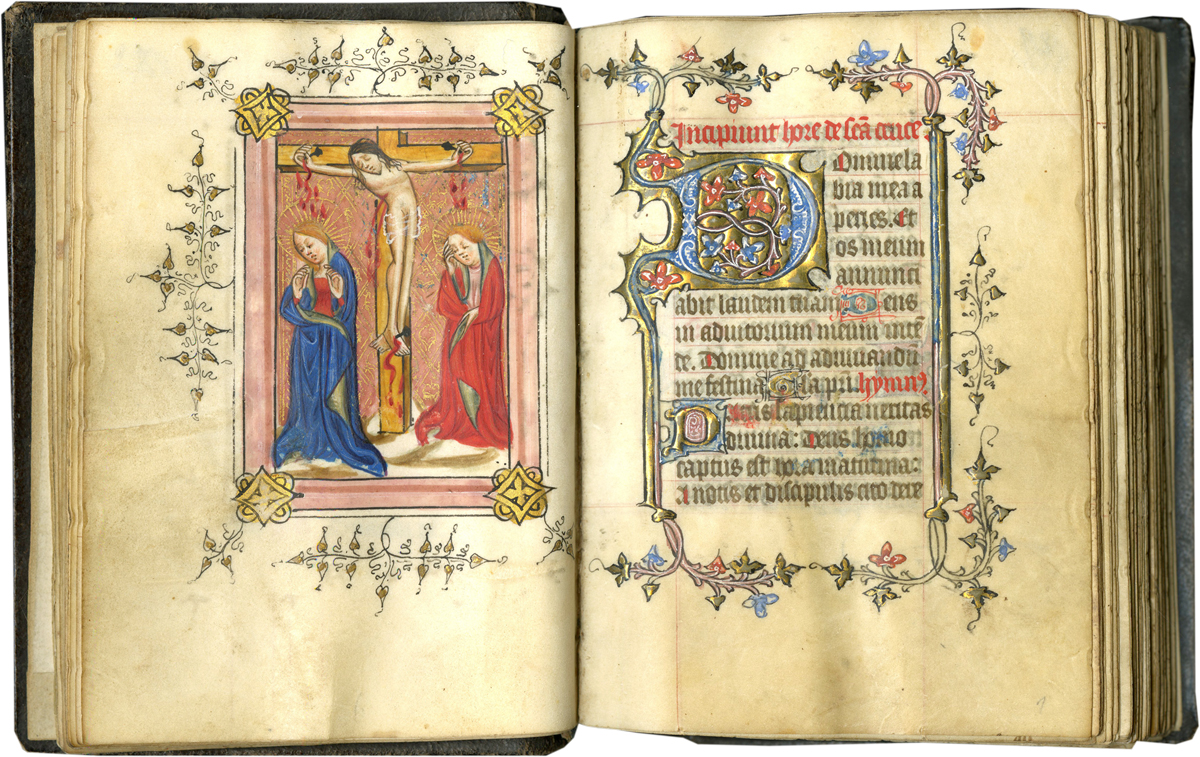 Incipiunt hore de scā cruce
Domine la
bia mea a
peries. Et
os meum
annunci
abit laudem tuam Deus
in adiutorium meum intē
de. Domine ad adiuuandū
me festina Gla pri. hymnꝰ
Patris sapiencia ueritas
diuina: deus homo
captus est hora matutina:
A notis et discipulis cito dere